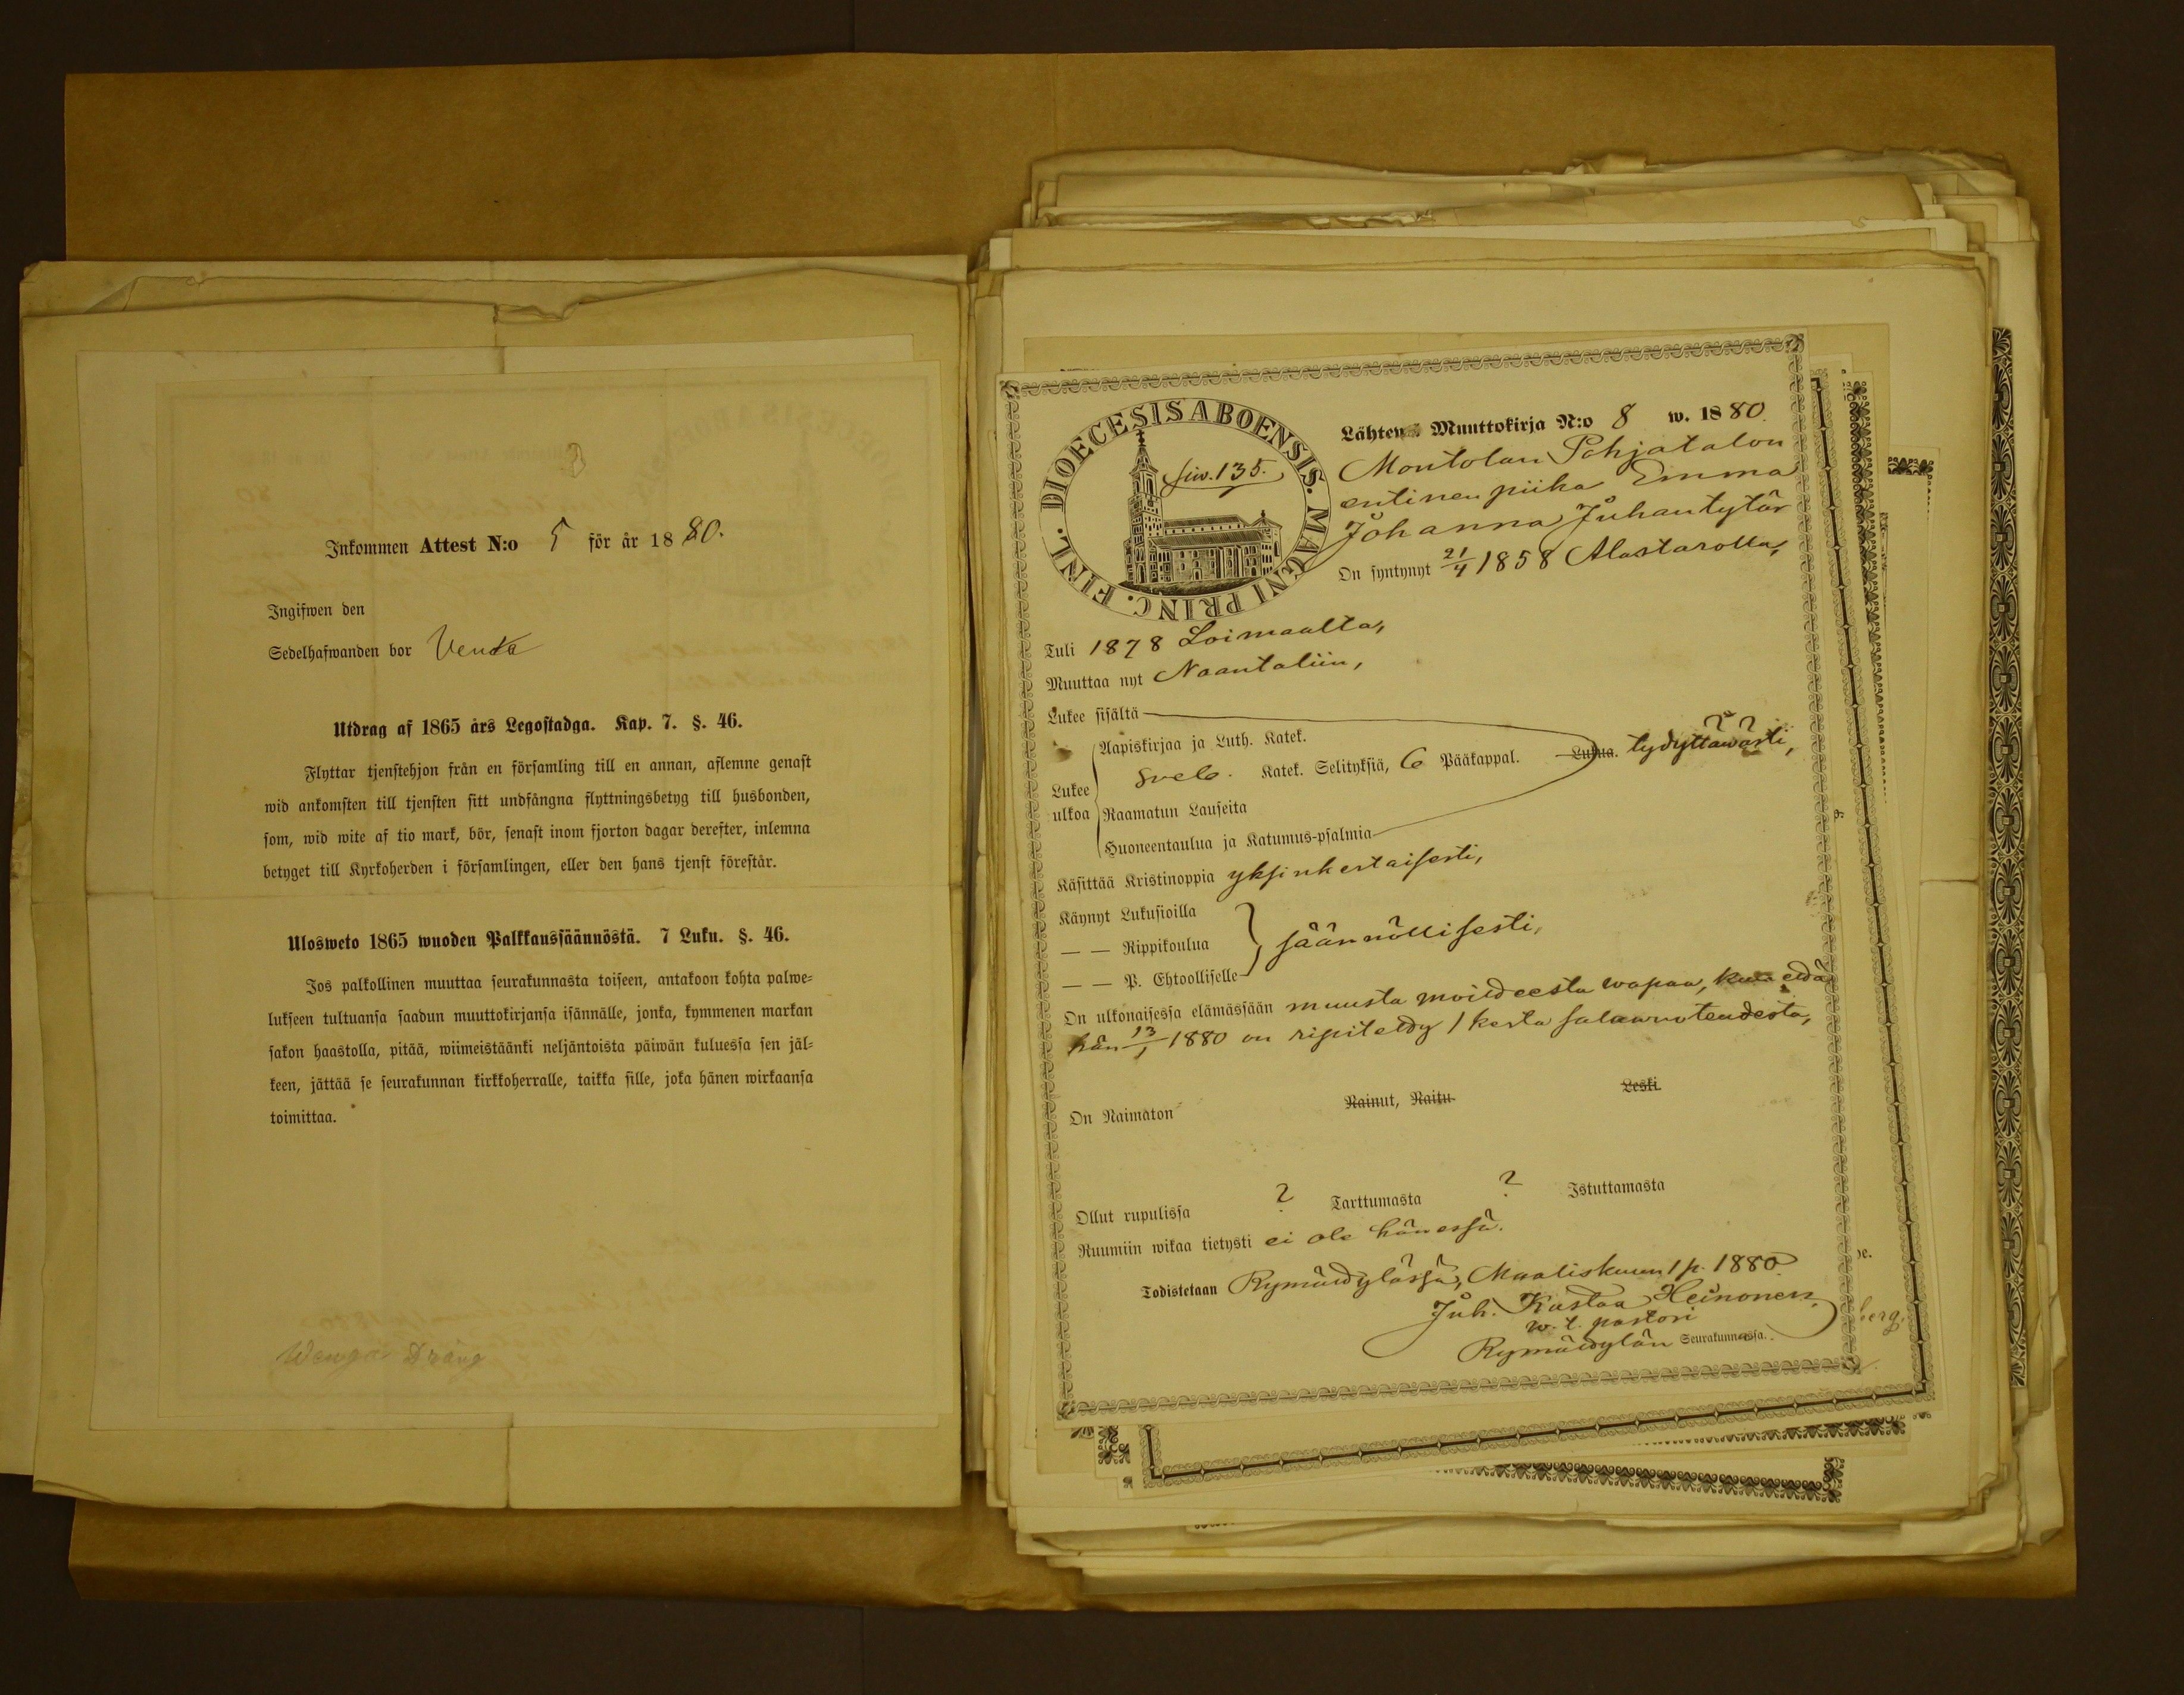 3
Inkommen Attest N:o 5 för år 1880.
Ingifwen den
Sedelhafwanden bor Venta
Utdrag af 1865 års Legostadga. Kap. 7. §. 46.
Flyttar tjenstehjon från en församling till en annan, aflemne genast
wid ankomsten till tjensten sitt undfångna flyttningsbetyg till husbonden,
som, wid wite af tio mark, bör, senast inom fjorton dagar derefter, inlemna
betyget till Kyrkoherden i församlingen, eller den hans tjenst förestår.
Ulosweto 1865 wuoden Palkkaussäännöstä. 7 Luku. §. 46.
Jos palkollinen muuttaa seurakunnasta toiseen, antakoon kohta palwe-
lukseen tultuansa saadun muuttokirjansa isännälle, jonka, kymmenen markan
sakon haastolla, pitää, wiimeistäänki neljäntoista päiwän kuluessa sen jäl-
keen, jättää se seurakunnan kirkkoherralle, taikka sille, joka hänen wirkaansa
toimittaa.
Wenga Dräng
DIOECESIS ABOENSIS. MAGNI PRINC. FINL.
siv. 135.
Lähten. Muuttokirja N:o 8 w. 1880.
Montolan Pohjatalon
entinen piika Emma
Johanna Juhantytär
On syntynyt 21/4 1858 Alastarolla,
Tuli 1878 Loimaalta,
Muuttaa nyt Naantaliin,
Lukee sisältä
Aapiskirjaa ja Luth. Katek.
Lukee ulkoa Sveb. Katek. Selityksiä, 6 Pääkappal. Lukua. tydyttäwästi,
Raamatun Lauseita
Huoneentaulua ja Katumus-psalmia
Käsittää Kristinoppia yksinkertaisesti,
Käynyt Lukusioilla
— — Rippikoulua säännöllisesti,
— — P. Ehtoolliselle
On ulkonaisessa elämässään muusta moitteesta wapaa, että
hän 13/1 1880 on ripitetty 1 kerta salawuoteudesta,
On Naimaton Nainut, Naitu Leski
Ollut rupulissa ? Tarttumasta ? Istuttamasta
Ruumiin wikaa tietysti ei ole hänessä.
Todistetaan Rymättylässä, Maaliskuun 1 p. 1880
Juh. Kustaa Heinonen
w. t. pastori
Rymättylän Seurakunnassa.
berg.